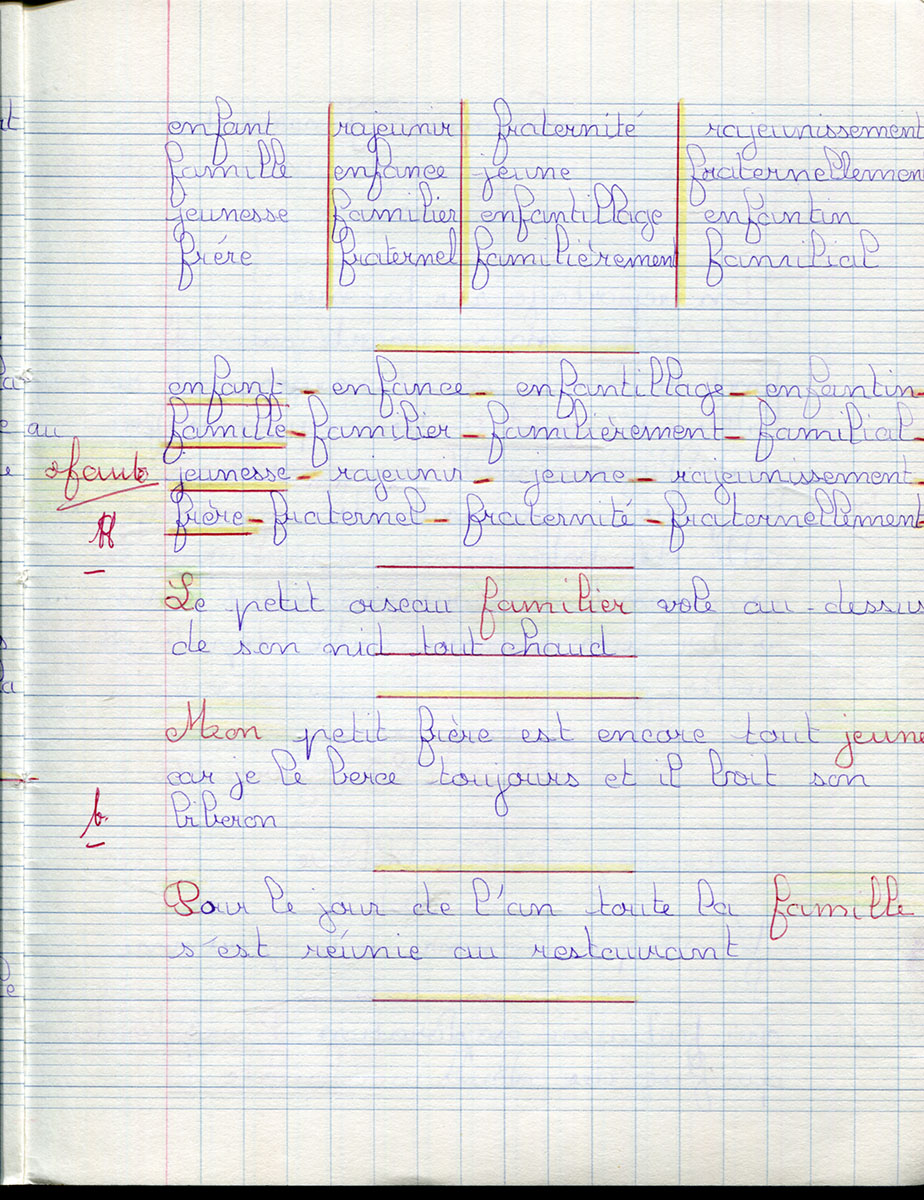 enfant rajeunir fraternité rajeunissement
famille enfance jeune fraternellemen
jeunesse familier enfantillage enfantin
frére fraternel familièrement familial
enfant - enfance - enfantillage - enfantin -
famille - familier - familièrement - familial -
au
jeunesse - rajeunir - jeune - rajeunissement -
frère - fraternel - fraternité - fraternellement
Le petit oiseau familier vole au-dessus
de son nid tout chaud
Mon petit frère est encore tout jeune
car je le berce toujours et il boit son
biberon
b.
Pour le jour de l'an toute la famille
s'est réunie au restaurant